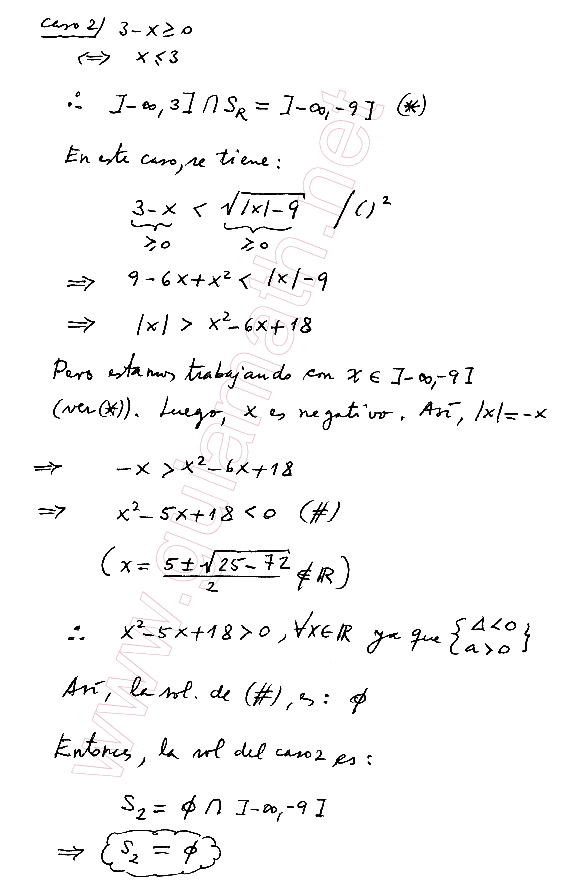 Caso 2/ 3-x ≥ 0
⟺ x ≤ 3
∴ ]-∞, 3] ∩ S_R = ]-∞, -9] (*)
En este caso, se tiene:
3-x < √(|x|-9) /()²
≥0 ≥0
⟹ 9-6x+x² < |x|-9
⟹ |x| > x²-6x+18
Pero estamos trabajando con x ∈ ]-∞,-9]
(ver(*)). Luego, x es negativo. Así, |x|=-x
⟹ -x > x²-6x+18
⟹ x²-5x+18 < 0 (#)
(x = (5±√(25-72))/2 ∉ ℝ)
∴ x²-5x+18 > 0, ∀x∈ℝ ya que {Δ<0 a>0}
Así, la sol. de (#), es: ϕ
Entonces, la sol del caso 2 es:
S₂ = ϕ ∩ ]-∞,-9]
⟹ S₂ = ϕ
www.guiamath.net